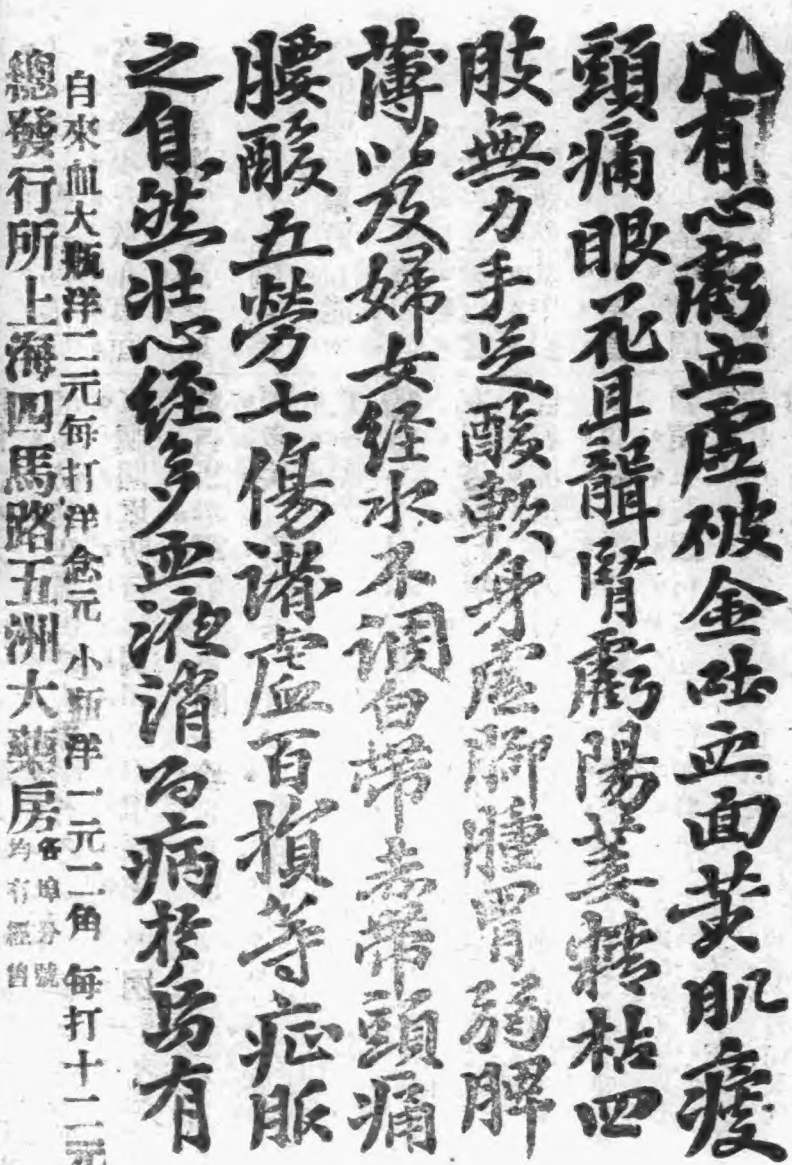 凡有心虧血虛破金吐血面黃肌瘦
頭痛眼花耳聾腎虧陽萎精枯四
肢無力手足酸軟身虛脚腫胃弱脾
薄以及婦女經水不調白帶赤帶頭痛
腰酸五勞七傷諸虛百損等症脈
之自然壯心經多血液消 病於烏有
自來血大瓶洋二元每打洋念元 小瓶洋一元二角 每打十二元
總發行所上海四馬路五洲大藥房 各埠分號均有經售